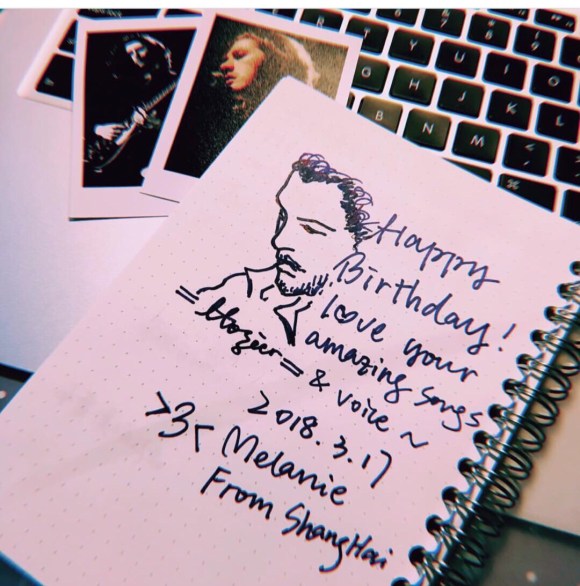 R T Y U I O
G H J K L
B N M
⌘
Happy
Birthday!
l♡ve your
amazing songs
& voice ~
=Hozier=
2018.3.17
>3< Melanie
From ShangHai